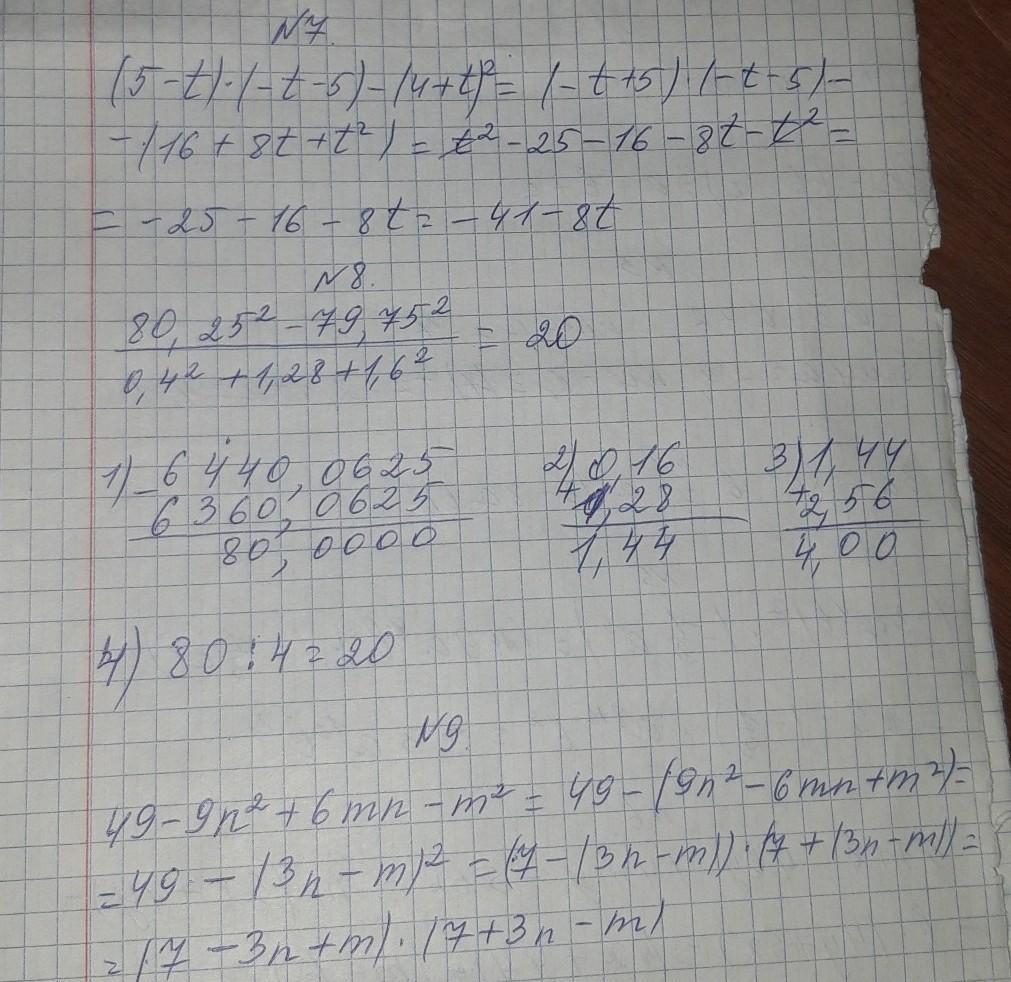 №7.
(5-t)·(-t-5)-(4+t)²= (-t+5)·(-t-5)-
-(16+8t+t²)= t²-25-16-8t-t²=
= -25-16-8t= -41-8t
№8.
80,25²-79,75²
0,4²+1,28+1,6² = 20
1) -6440,0625 2) 0,16 3) 1,44
6360,0625 +1,28 +2,56
80,0000 1,44 4,00
4) 80:4=20
№9.
49-9n²+6mn-m²= 49-(9n²-6mn+m²)=
=49-(3n-m)²=(7-(3n-m))·(7+(3n-m))=
=(7-3n+m)·(7+3n-m)